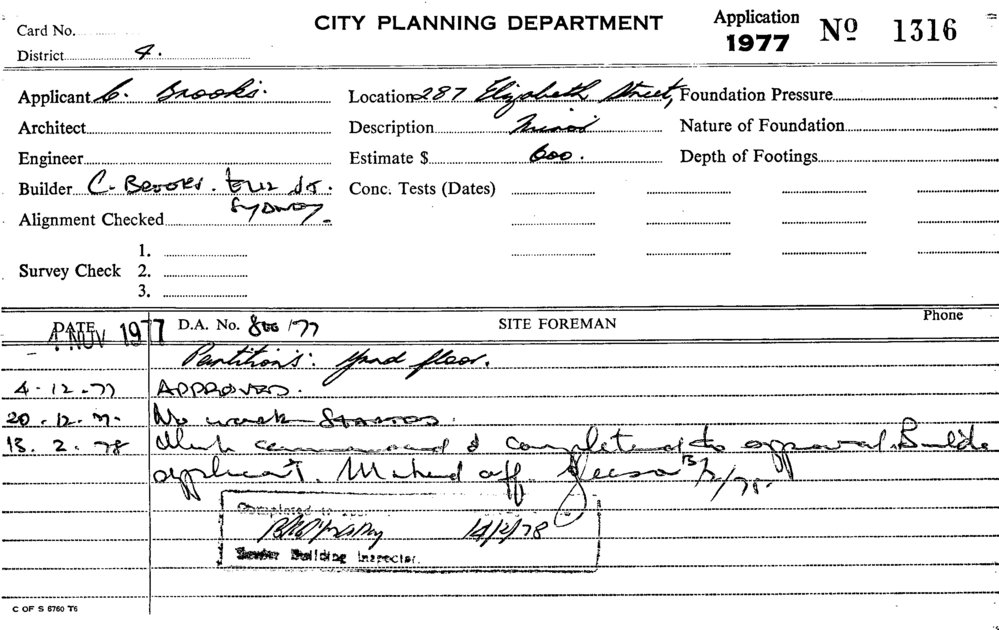 Card No.
CITY PLANNING DEPARTMENT
Application 1977 No 1316
District 4.
Applicant C. Brooks. Location 287 Elizabeth Street, Foundation Pressure
Architect Description Minor Nature of Foundation
Engineer Estimate $ 600. Depth of Footings
Builder C. BROOKS. ELIZ ST. Conc. Tests (Dates)
SYDNEY.
Alignment Checked
1.
Survey Check 2.
3.
DATE NOV 1977 D.A. No. /77 SITE FOREMAN Phone
Partitions: floor.
4.12.77 APPROVED.
20.12.77. No work STARTED.
13.2.78 Work commenced & completed to approval. Builder
applicant. Marked off. 13/2/78.
Completed to
14/2/78
Senior Building Inspector.
C OF S 6760 T6